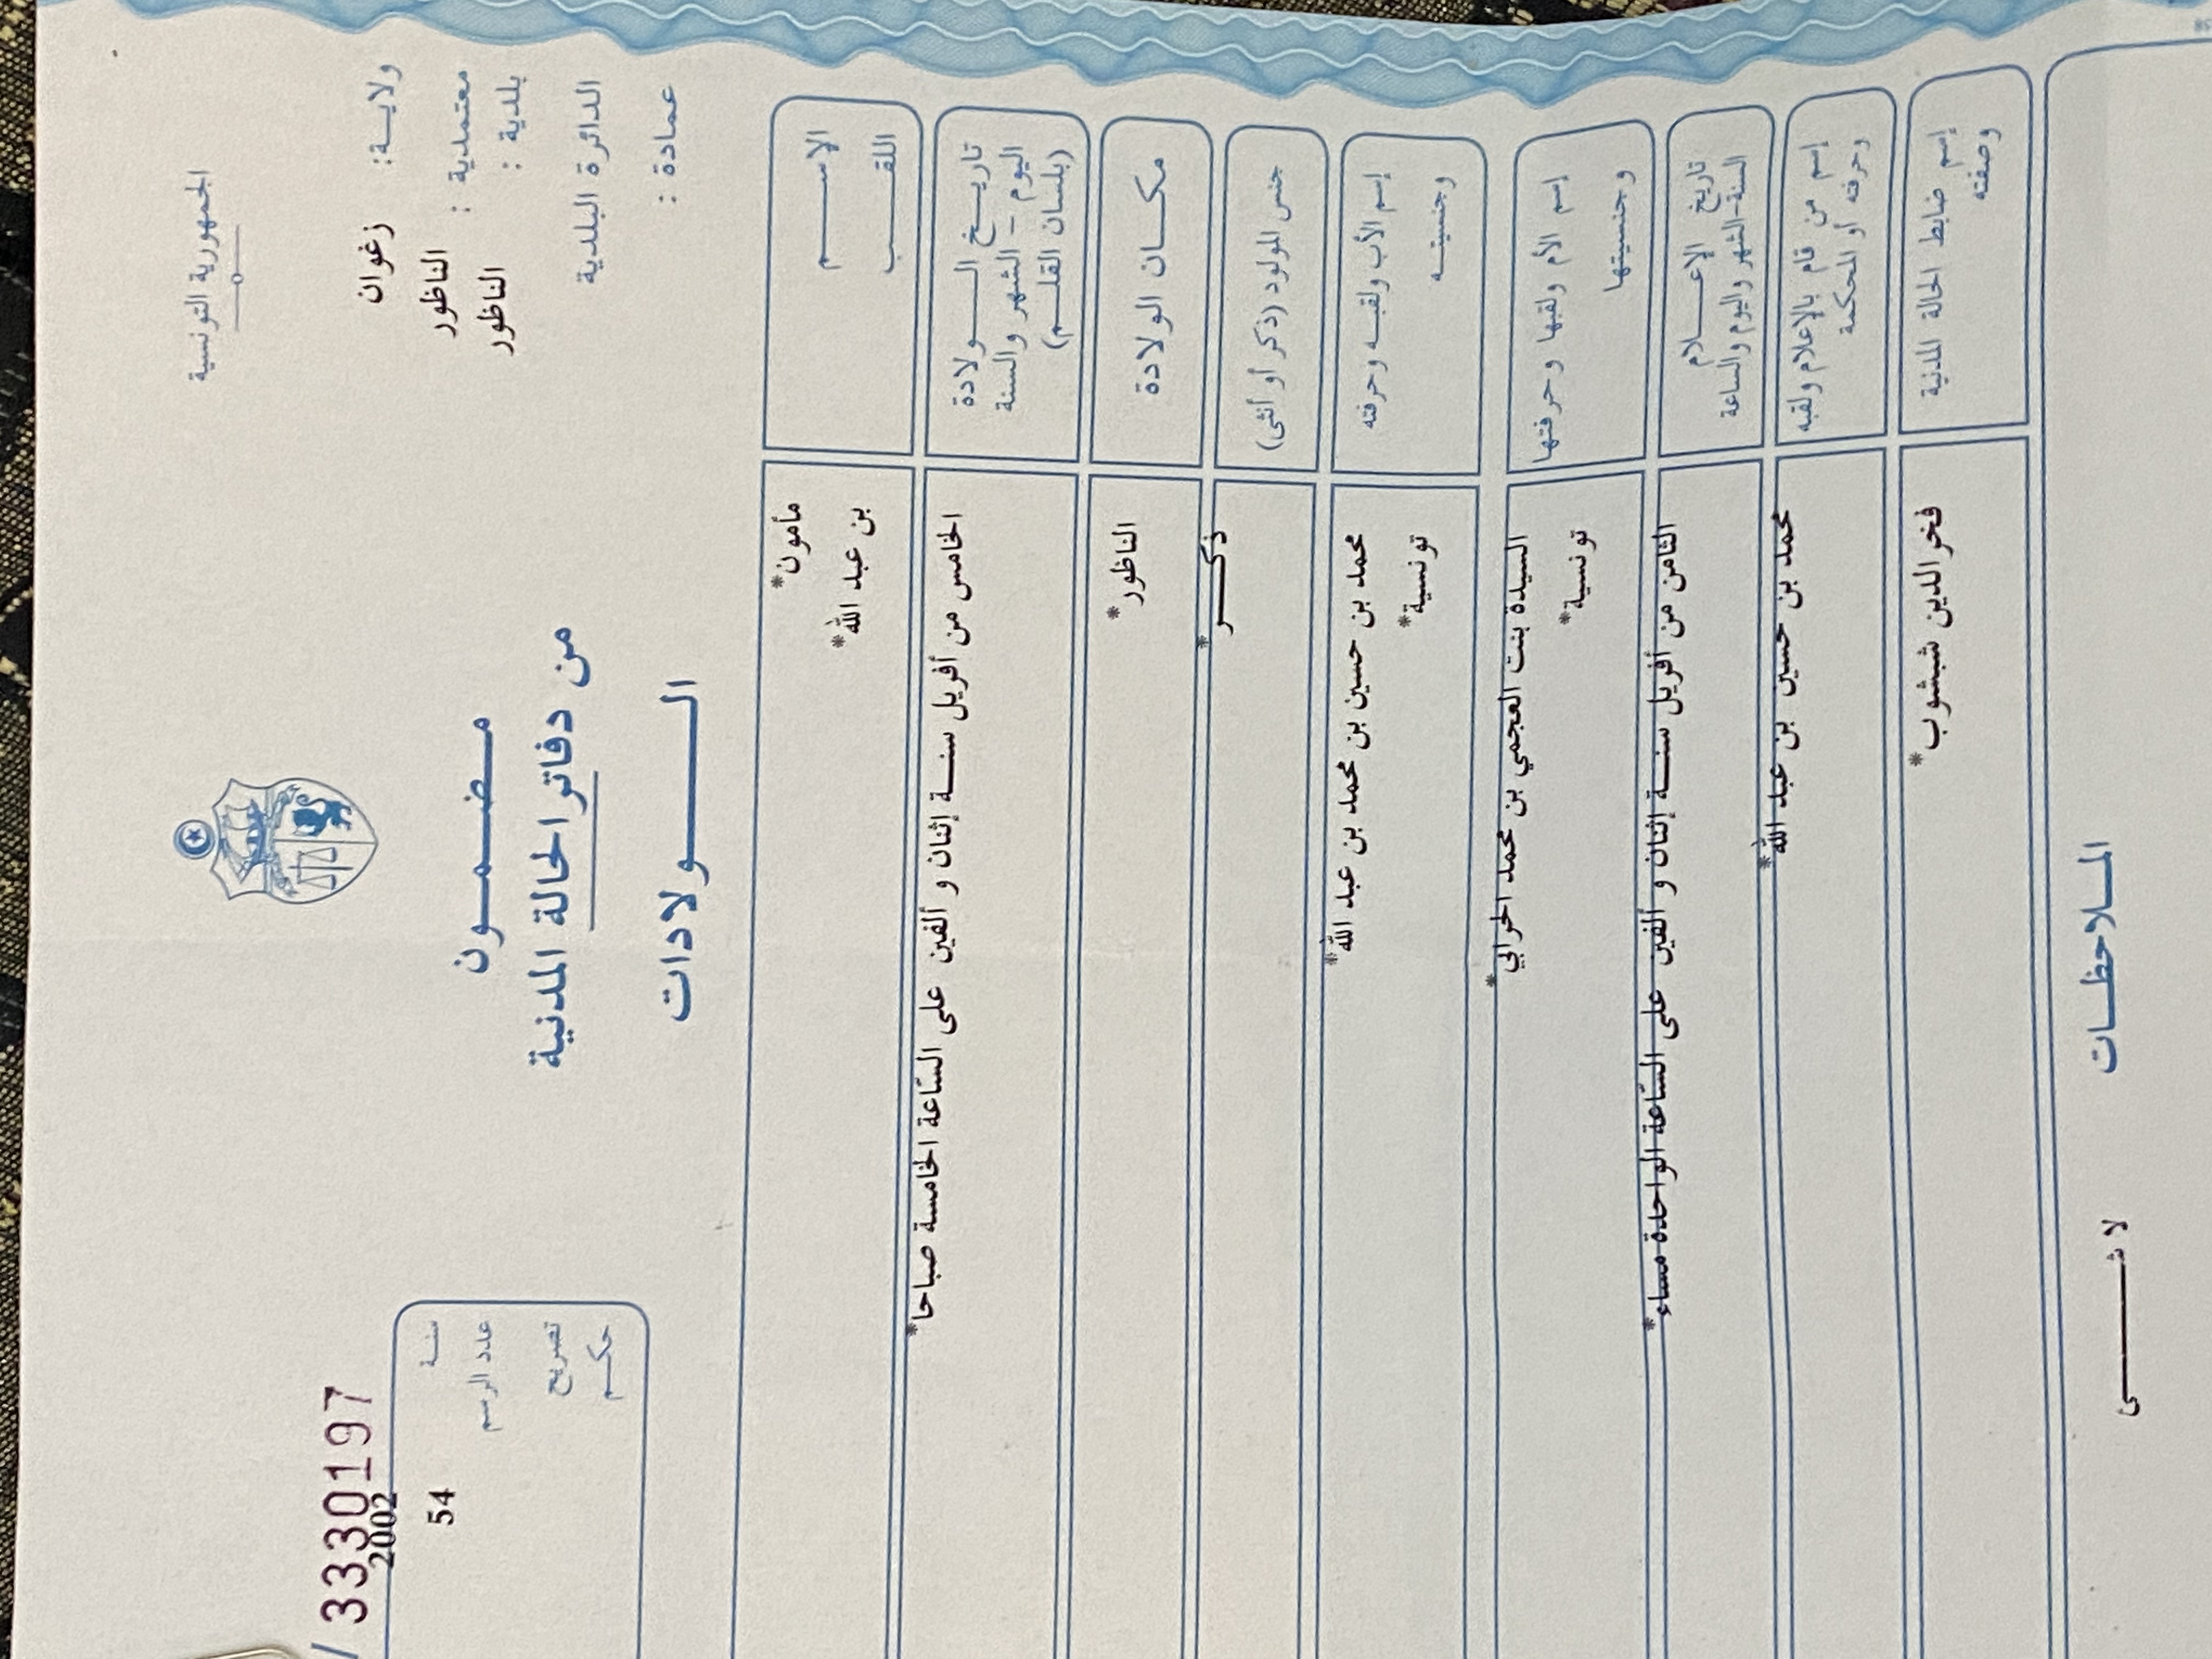 الجمهورية التونسية
ولايــة: زغوان
معتمدية : الناظور
بلدية : الناظور
الدائرة البلدية
عمادة :
مـضـمـــون
من دفاتر الحالة المدنية
الـــــولادات
/ 33330197
سنــة 2002
عدد الرسم 54
تصريح
حكــم
الإســـــم مأمون*
اللقـــــب بن عبد الله*
تاريــخ الــــولادة الخامس من أفريل سنــة إثنان و ألفين على السّاعة الخامسة صباحا*
اليوم – الشهر والسنة
(بلسان القلــم)
مكــان الولادة الناظور*
جنس المولود (ذكر أو أنثى) ذكـــر*
إسم الأب ولقبــه وحرفته محمد بن حسين بن محمد بن عبد الله*
وجنسيتــه تونسية*
إسم الأم ولقبها وحرفتها السيدة بنت العجمي بن محمد الحرابي*
وجنسيتها تونسية*
تاريخ الإعـــلام الثامن من أفريل سنــة إثنان و ألفين على السّاعة الواحدة مساء*
السنة-الشهر واليوم والساعة
إسم من قام بالإعلام ولقبه محمد بن حسين بن عبد الله*
وحرفته أو المحكمة
إسم ضابط الحالة المدنية فخر الدين شبشوب*
وصفته
المــلاحظــات
لا شـــــــى